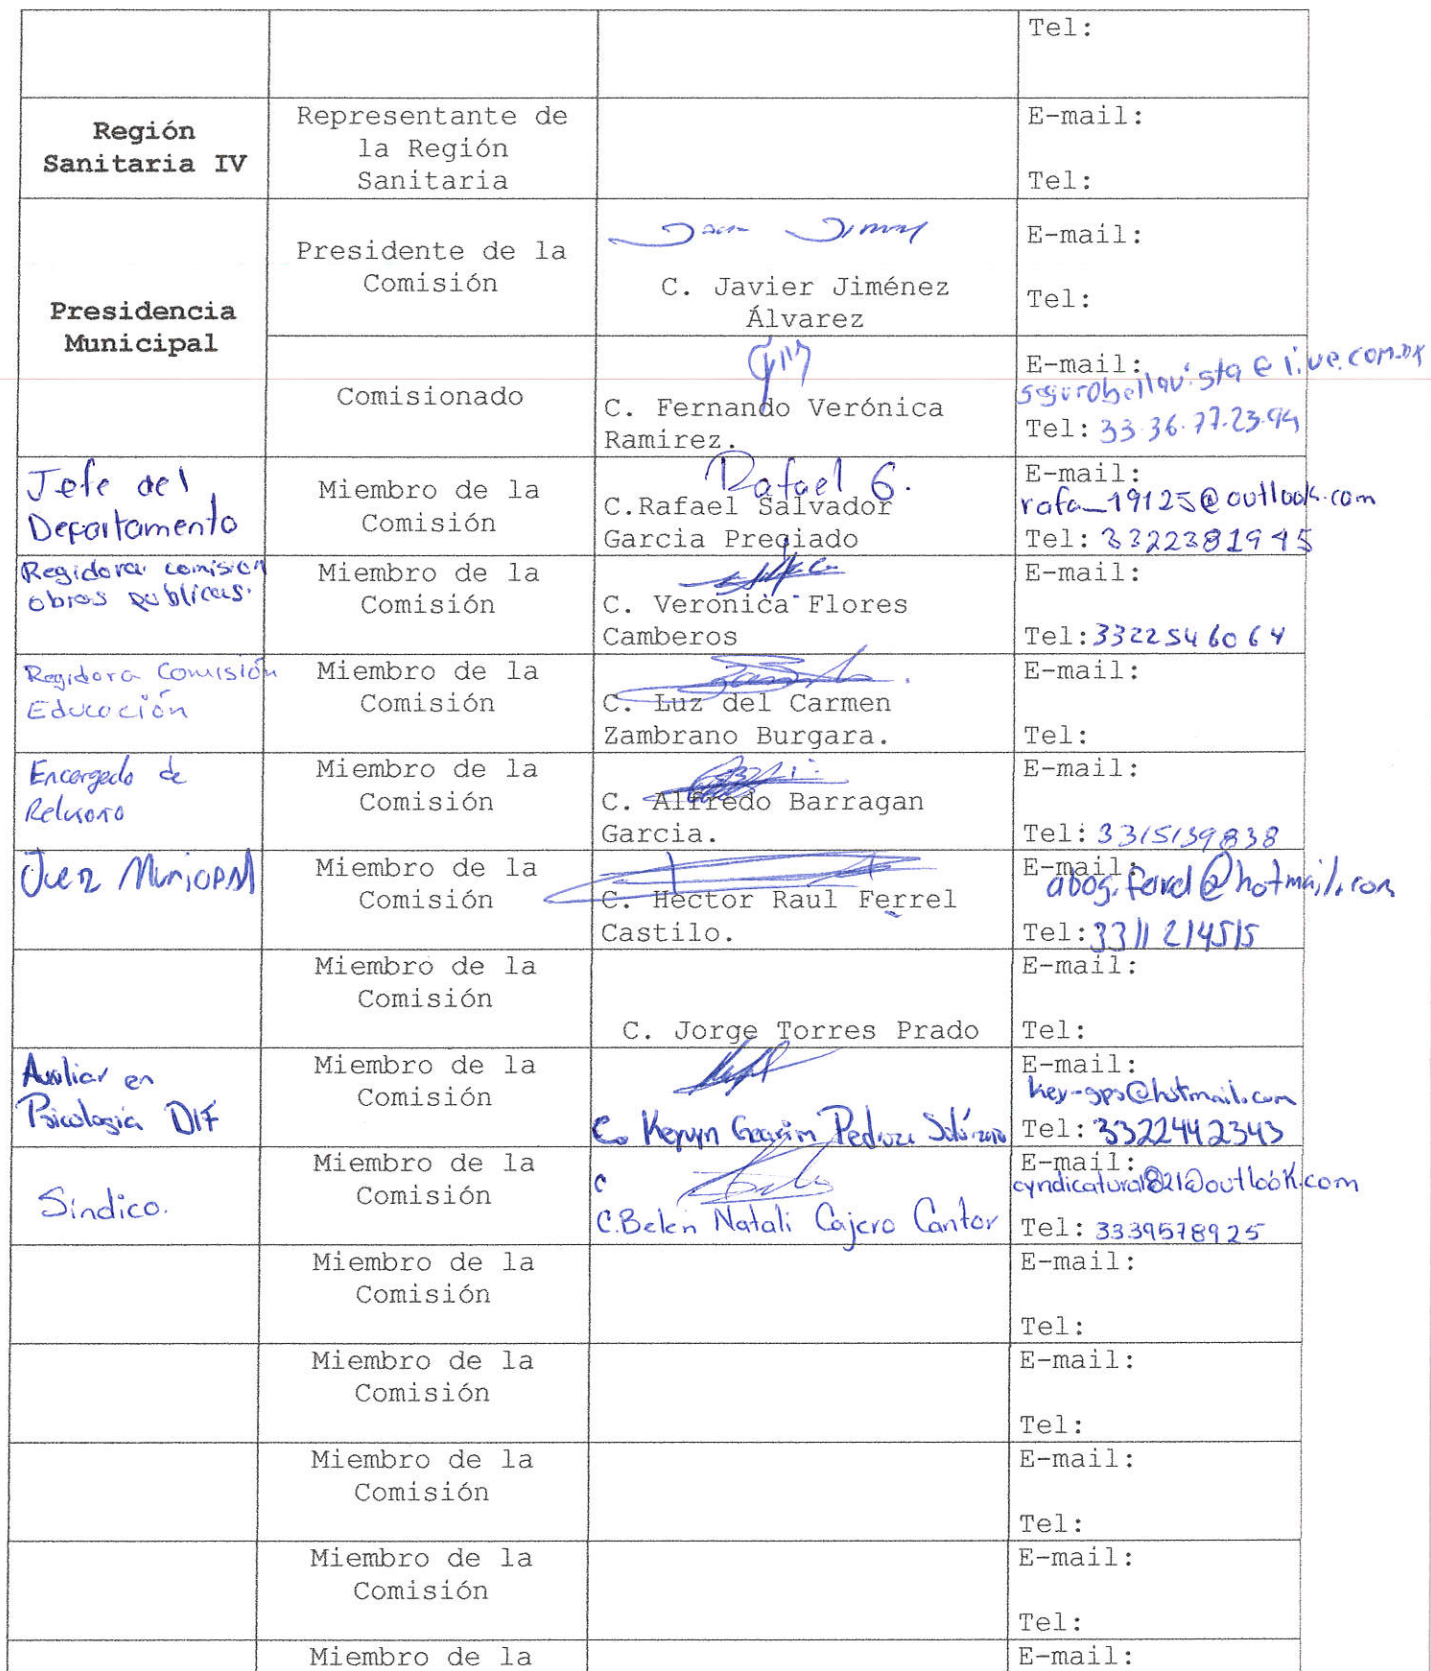 Tel:
Región
Sanitaria IV
Representante de
la Región
Sanitaria
E-mail:
Tel:
Presidencia
Municipal
Presidente de la
Comisión
C. Javier Jiménez
Álvarez
E-mail:
Tel:
Comisionado
C. Fernando Verónica
Ramirez.
E-mail:
segurobellavista@live.com.mx
Tel: 33.36.77.23.94
Jefe del
Departamento
Miembro de la
Comisión
Rafael G.
C.Rafael Salvador
Garcia Preciado
E-mail:
rafa_19125@outlook.com
Tel: 3322381945
Regidora comision
obras publicas.
Miembro de la
Comisión
C. Veronica Flores
Camberos
E-mail:
Tel: 3322546064
Regidora Comisión
Educación
Miembro de la
Comisión
C. Luz del Carmen
Zambrano Burgara.
E-mail:
Tel:
Encargado de
Miembro de la
Comisión
C. Alfredo Barragan
Garcia.
E-mail:
Tel: 3315139838
Juez Municipal
Miembro de la
Comisión
C. Hector Raul Ferrel
Castilo.
E-mail:
Tel: 3311214515
Miembro de la
Comisión
C. Jorge Torres Prado
E-mail:
Tel:
Auxiliar en
Psicologia DIF
Miembro de la
Comisión
C.
E-mail:
key-gps@hotmail.com
Tel: 3322442343
Síndico.
Miembro de la
Comisión
C
C.Belen Natali Cajero Cantor
E-mail:
Tel: 3339578925
Miembro de la
Comisión
E-mail:
Tel:
Miembro de la
Comisión
E-mail:
Tel:
Miembro de la
Comisión
E-mail:
Tel:
Miembro de la
Comisión
E-mail:
Tel:
Miembro de la
E-mail: